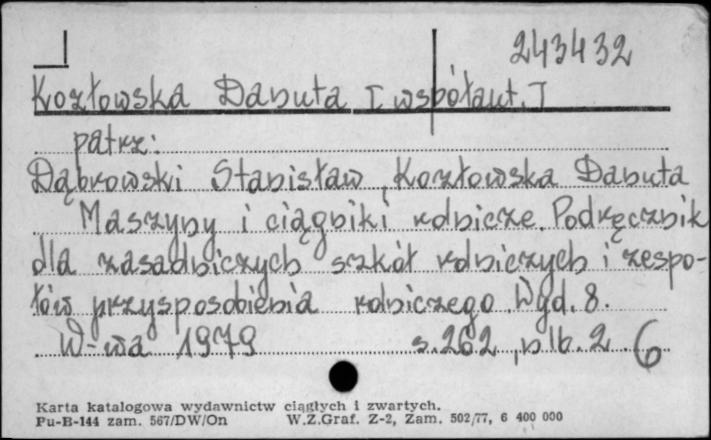 243432
Kozłowska Danuta [współaut.]
patrz:
Dąbrowski Stanisław, Kozłowska Danuta
Maszyny i ciągniki rolnicze. Podręcznik
dla zasadniczych szkół rolniczych i zespo-
łów przysposobienia rolniczego. Wyd. 8.
W-wa 1979 s. 262, nlb. 2 6
Karta katalogowa wydawnictw ciągłych i zwartych.
Pu-B-144 zam. 567/DW/On W.Z.Graf. Z-2, Zam. 502/77, 6 400 000